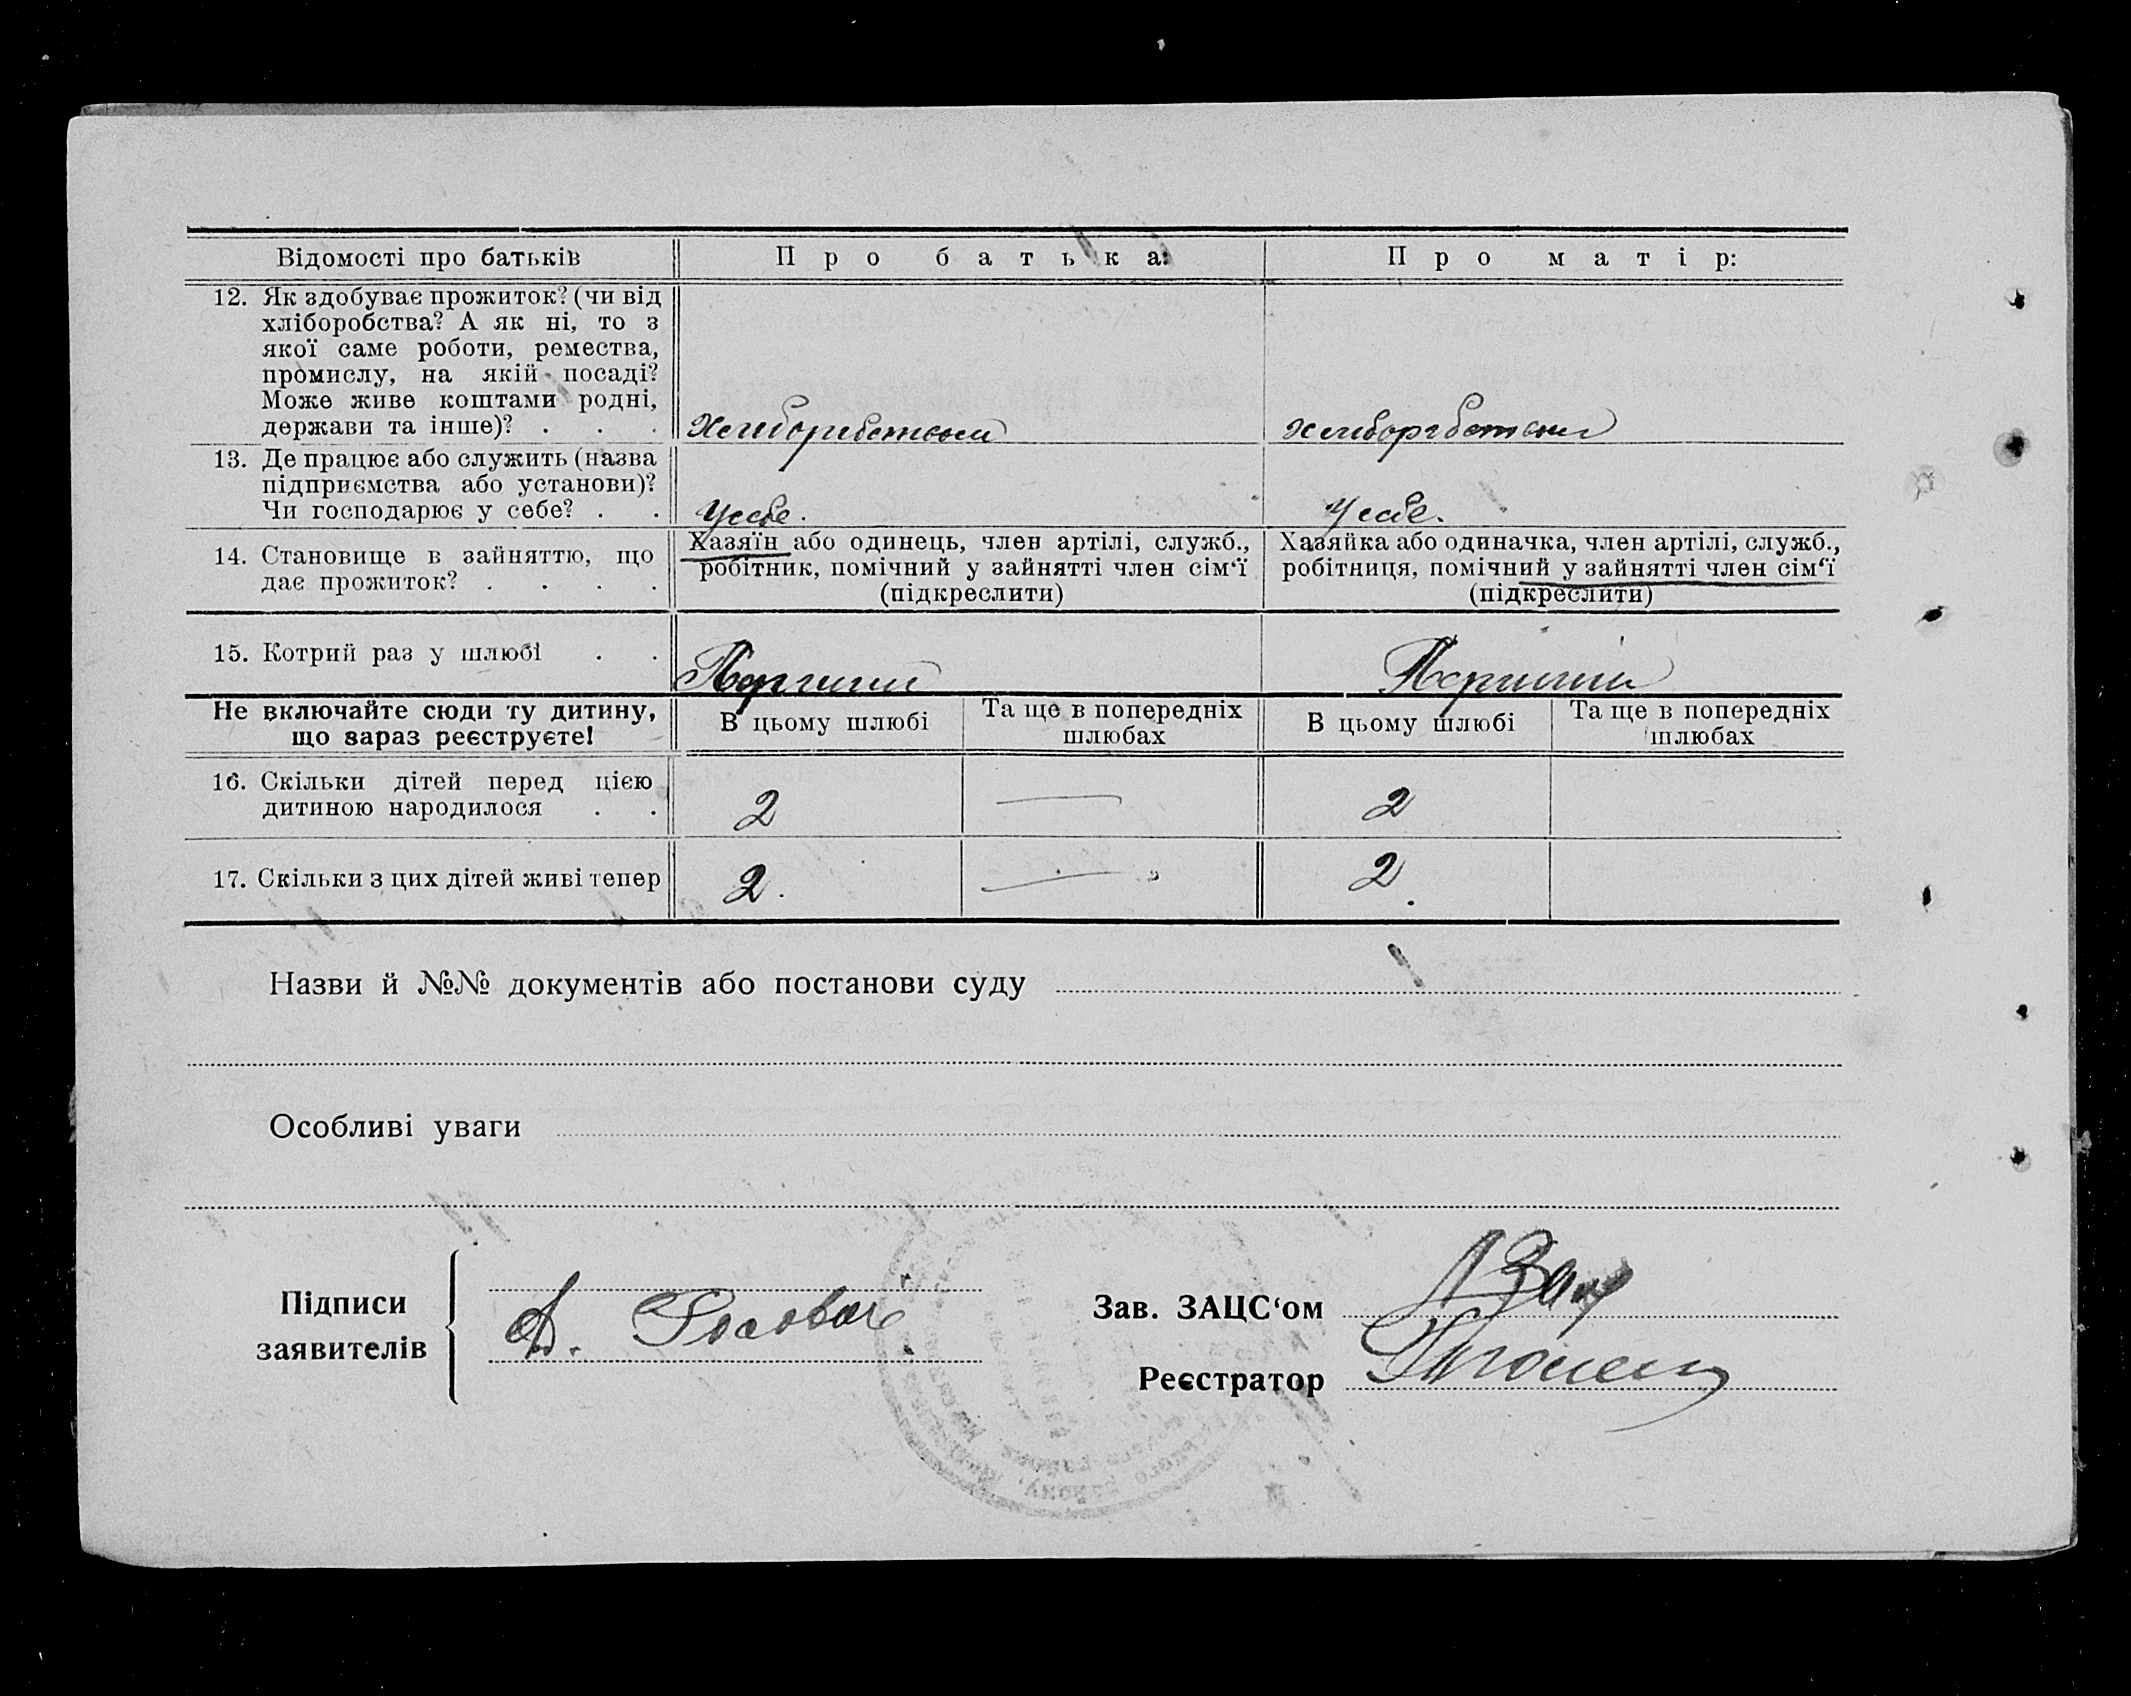 Відомості про батьків
Про батька:
Про матір:
12. Як здобуває прожиток? (чи від
хліборобства? А як ні, то з
якої саме роботи, ремества,
промислу, на якій посаді?
Може живе коштами родні,
держави та інше)? . . .
Хлиборобством
хлиборобством
13. Де працює або служить (назва
підприємства або установи)?
Чи господарює у себе? . .
У себе.
У себе.
14. Становище в зайняттю, що
дає прожиток? . . . .
Хазяїн або одинець, член артілі, служб.,
робітник, помічний у зайнятті член сім'ї
(підкреслити)
Хазяйка або одиначка, член артілі, служб.,
робітниця, помічний у зайнятті член сім'ї
(підкреслити)
15. Котрий раз у шлюбі . .
Перший
Перший
Не включайте сюди ту дитину,
що зараз реєструєте!
В цьому шлюбі
Та ще в попередніх
шлюбах
В цьому шлюбі
Та ще в попередніх
шлюбах
16. Скільки дітей перед цією
дитиною народилося . .
2
—
2
17. Скільки з цих дітей живі тепер
2.
—
2.
Назви й №№ документів або постанови суду
Особливі уваги
Підписи
заявителів
Зав. ЗАЦС'ом
Реєстратор